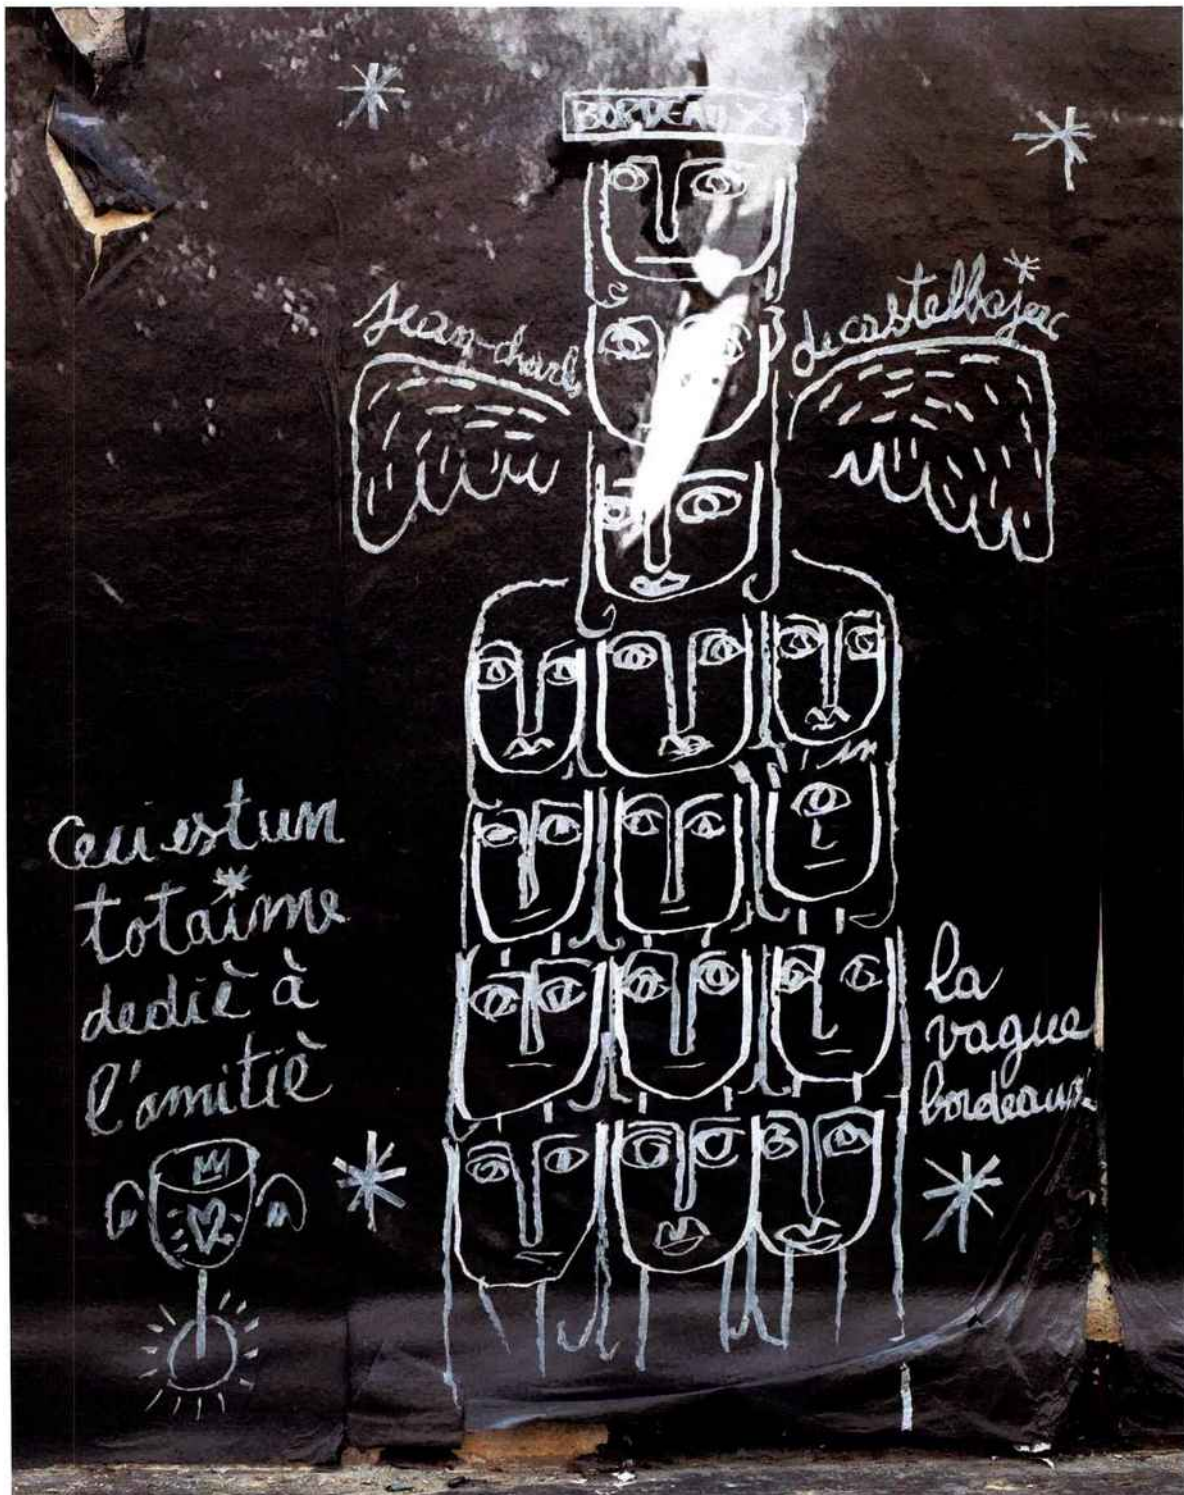 BORDEAUX
Jean-charles
de castelbajac
Ceci est un
totaime
dediè à
l'amitiè
la
vague
bordeaux